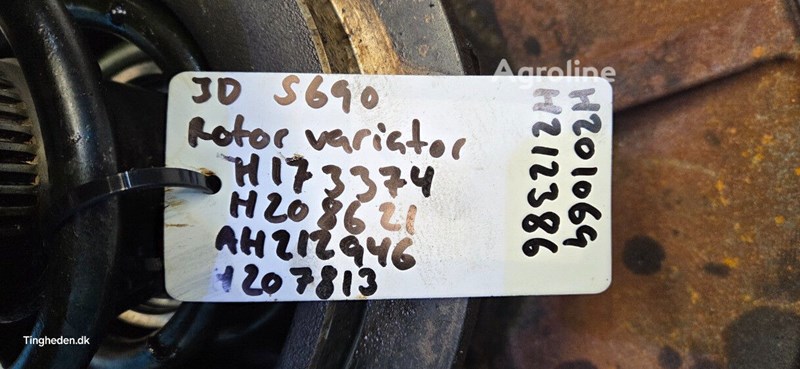 JD S690
Rotor variator
H173374
H208621
AH212946
H207813
H201069
H212386
Agroline
Tingheden.dk